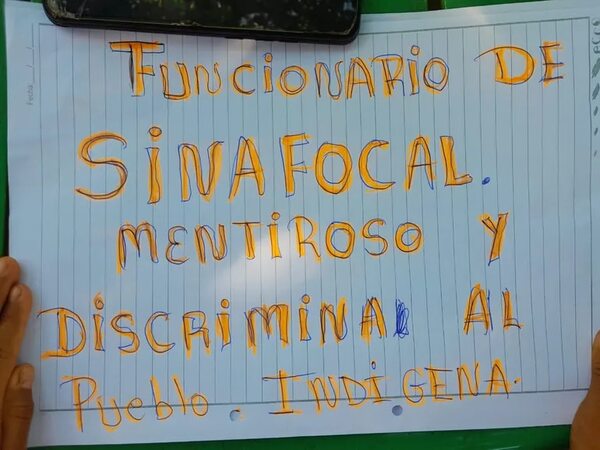 FUNCIONARIO DE
SINAFOCAL.
MENTIROSO Y
DISCRIMINA AL
Pueblo. INDÍGENA.
Fecha